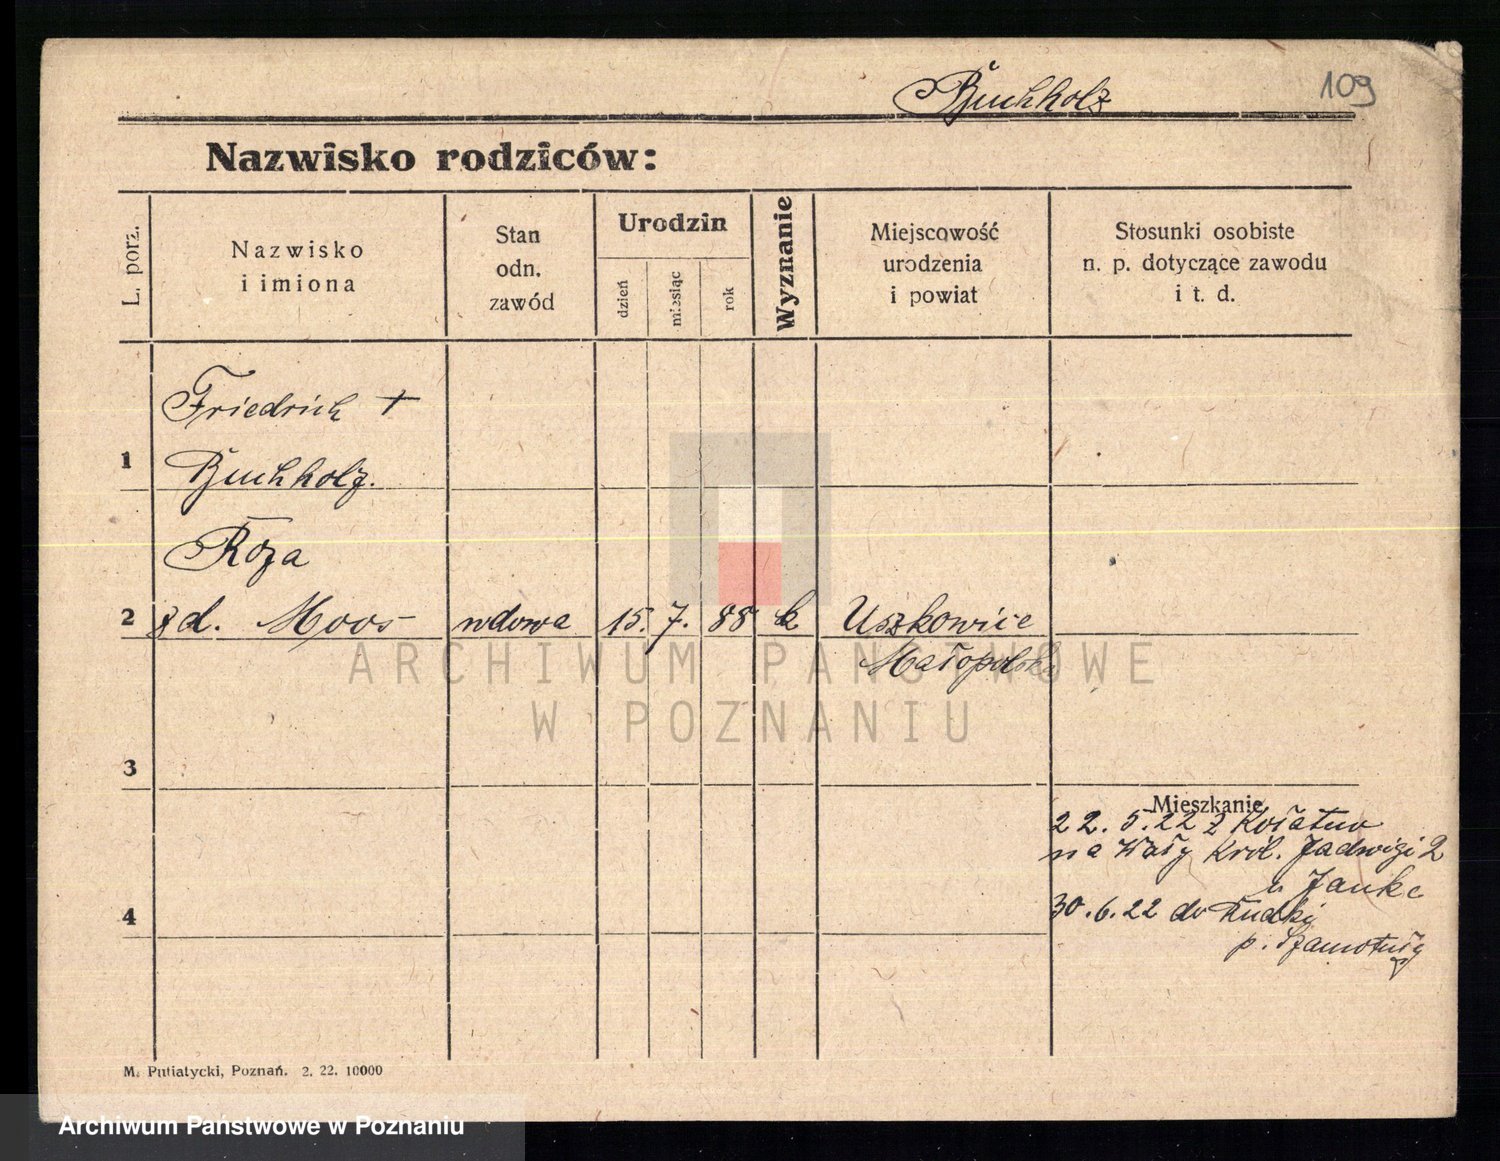 109
Buchholz
Nazwisko rodziców:
L. porz.
Nazwisko
i imiona
Stan
odn.
zawód
Urodzin
dzień
miesiąc
rok
Wyznanie
Miejscowość
urodzenia
i powiat
Stosunki osobiste
n. p. dotyczące zawodu
i t. d.
Friedrich +
1 Buchholz.
Róza
2 zd. Moos wdowa 15. 7. 88 k Uszkowice
Małopolska
ARCHIWUM PAŃSTWOWE
W POZNANIU
3
Mieszkanie
22.5.22 z
na Wały Król. Jadwigi 2
u Janke
4
30.6.22 do Rudki
p. Szamotuły
M. Putiatycki, Poznań. 2. 22. 10000
Archiwum Państwowe w Poznaniu